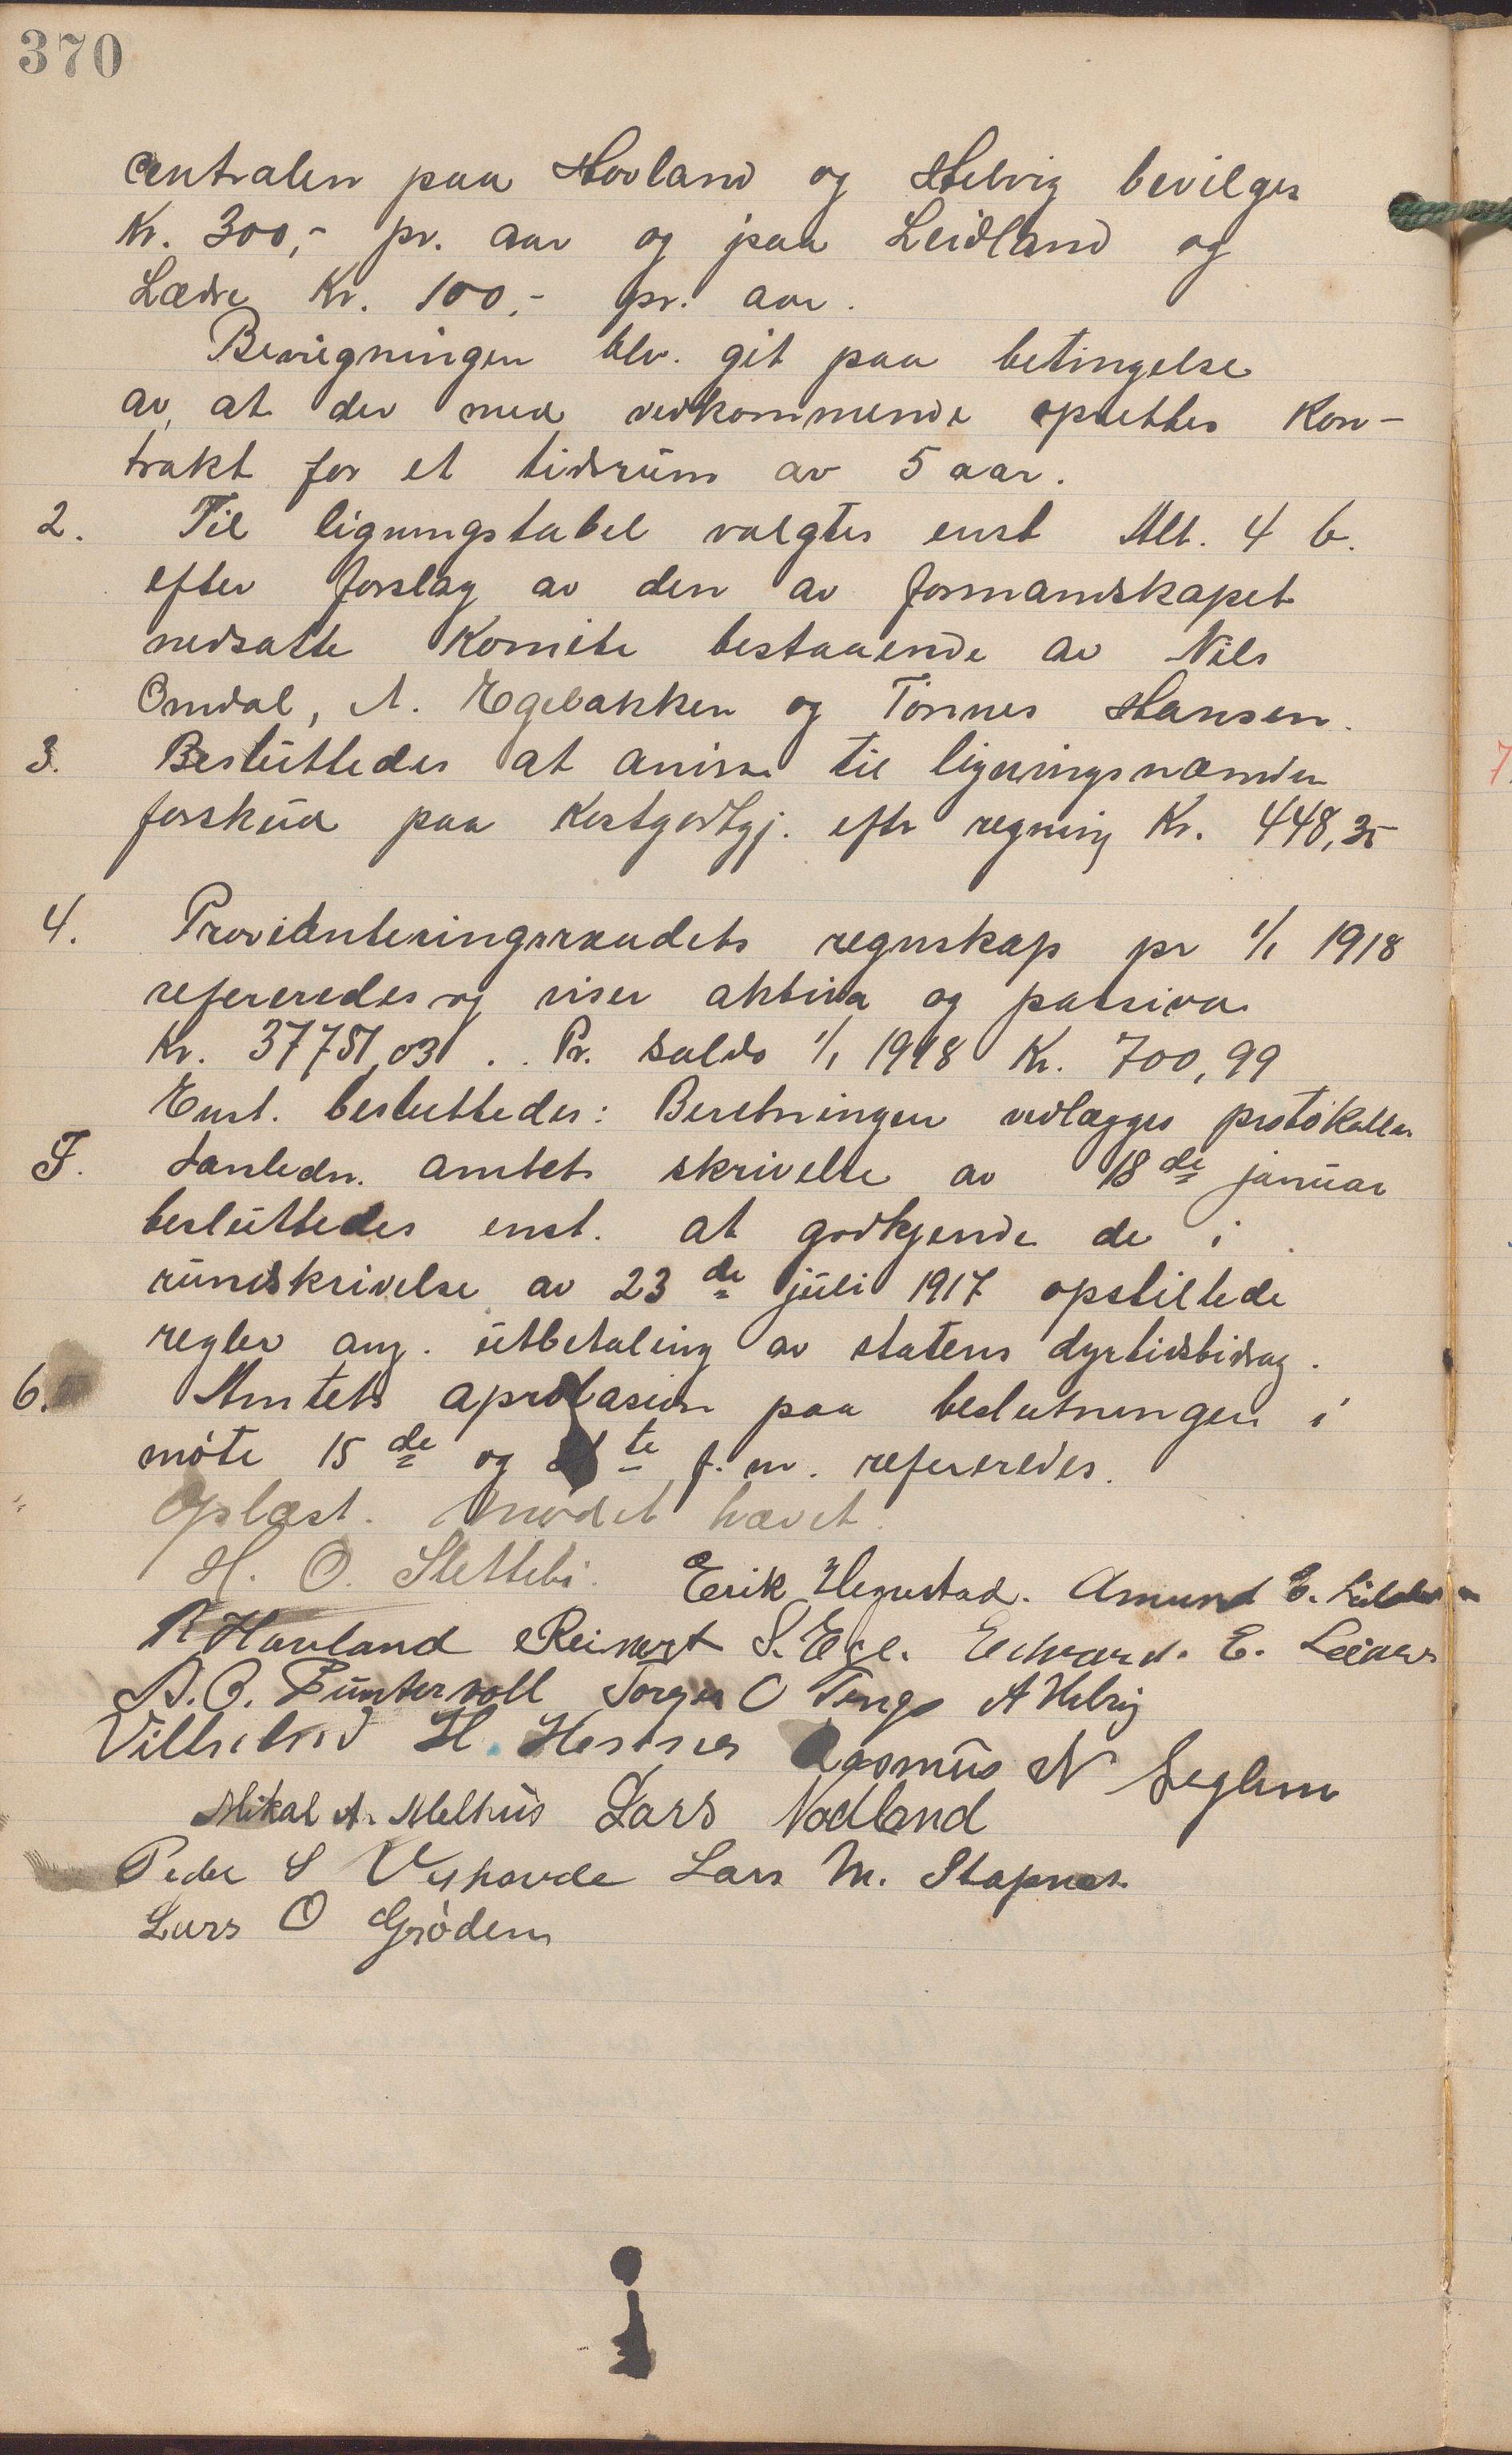 370
centralen paa Hovland og Helvig bevilges
Kr. 300,- pr. aar og paa Leidland og
Lædre Kr. 100,- pr. aar.
Bevilgningen blv. git paa betingelse
av, at der med vedkommende oprettes Kon-
trakt for et tidsrum av 5 aar.
2. Til ligningstabel valgtes enst Alt. 4 b.
efter forslag av den av formandskapet
nedsatte Komite bestaaende av Nils
Omdal, A. Egebakken og Tönnes Hansen.
3. Besluttedes at anvise til ligningsnævnden
forskud paa Kostgodtgj. efter regning Kr. 448,35
4. Provianteringsraadets regnskap pr 1/1 1918
refereredes og viser aktiva og passiva
Kr. 37751,03. Pr. Saldo 1/1 1918 Kr. 700,99
Enst. besluttedes: Beretningen vedlægges protokollen
5. I anledn. amtets skrivelse av 18de januar
besluttedes enst. at godkjende de i
rundskrivelse av 23de juli 1917 opstillede
regler ang. utbetaling av statens dyrtidsbidrag.
6. Amtets aprobasion paa beslutningen i
møte 15de og te f. m. refereredes.
Oplæst. Mødet hævet.
H. O. Slettebö. Erik Hegrestad. Amund E.
R Hovland Reinert S. Ege. Edvard. E.
A. O. Puntervoll Torger O Tengs A Helvig
Vilhelm H. Hestnes Rasmus N Seglem
Mikal A. Melhus Lars Nodland
Peder S Veshovde Lars M. Stapnes.
Lars O Grødem